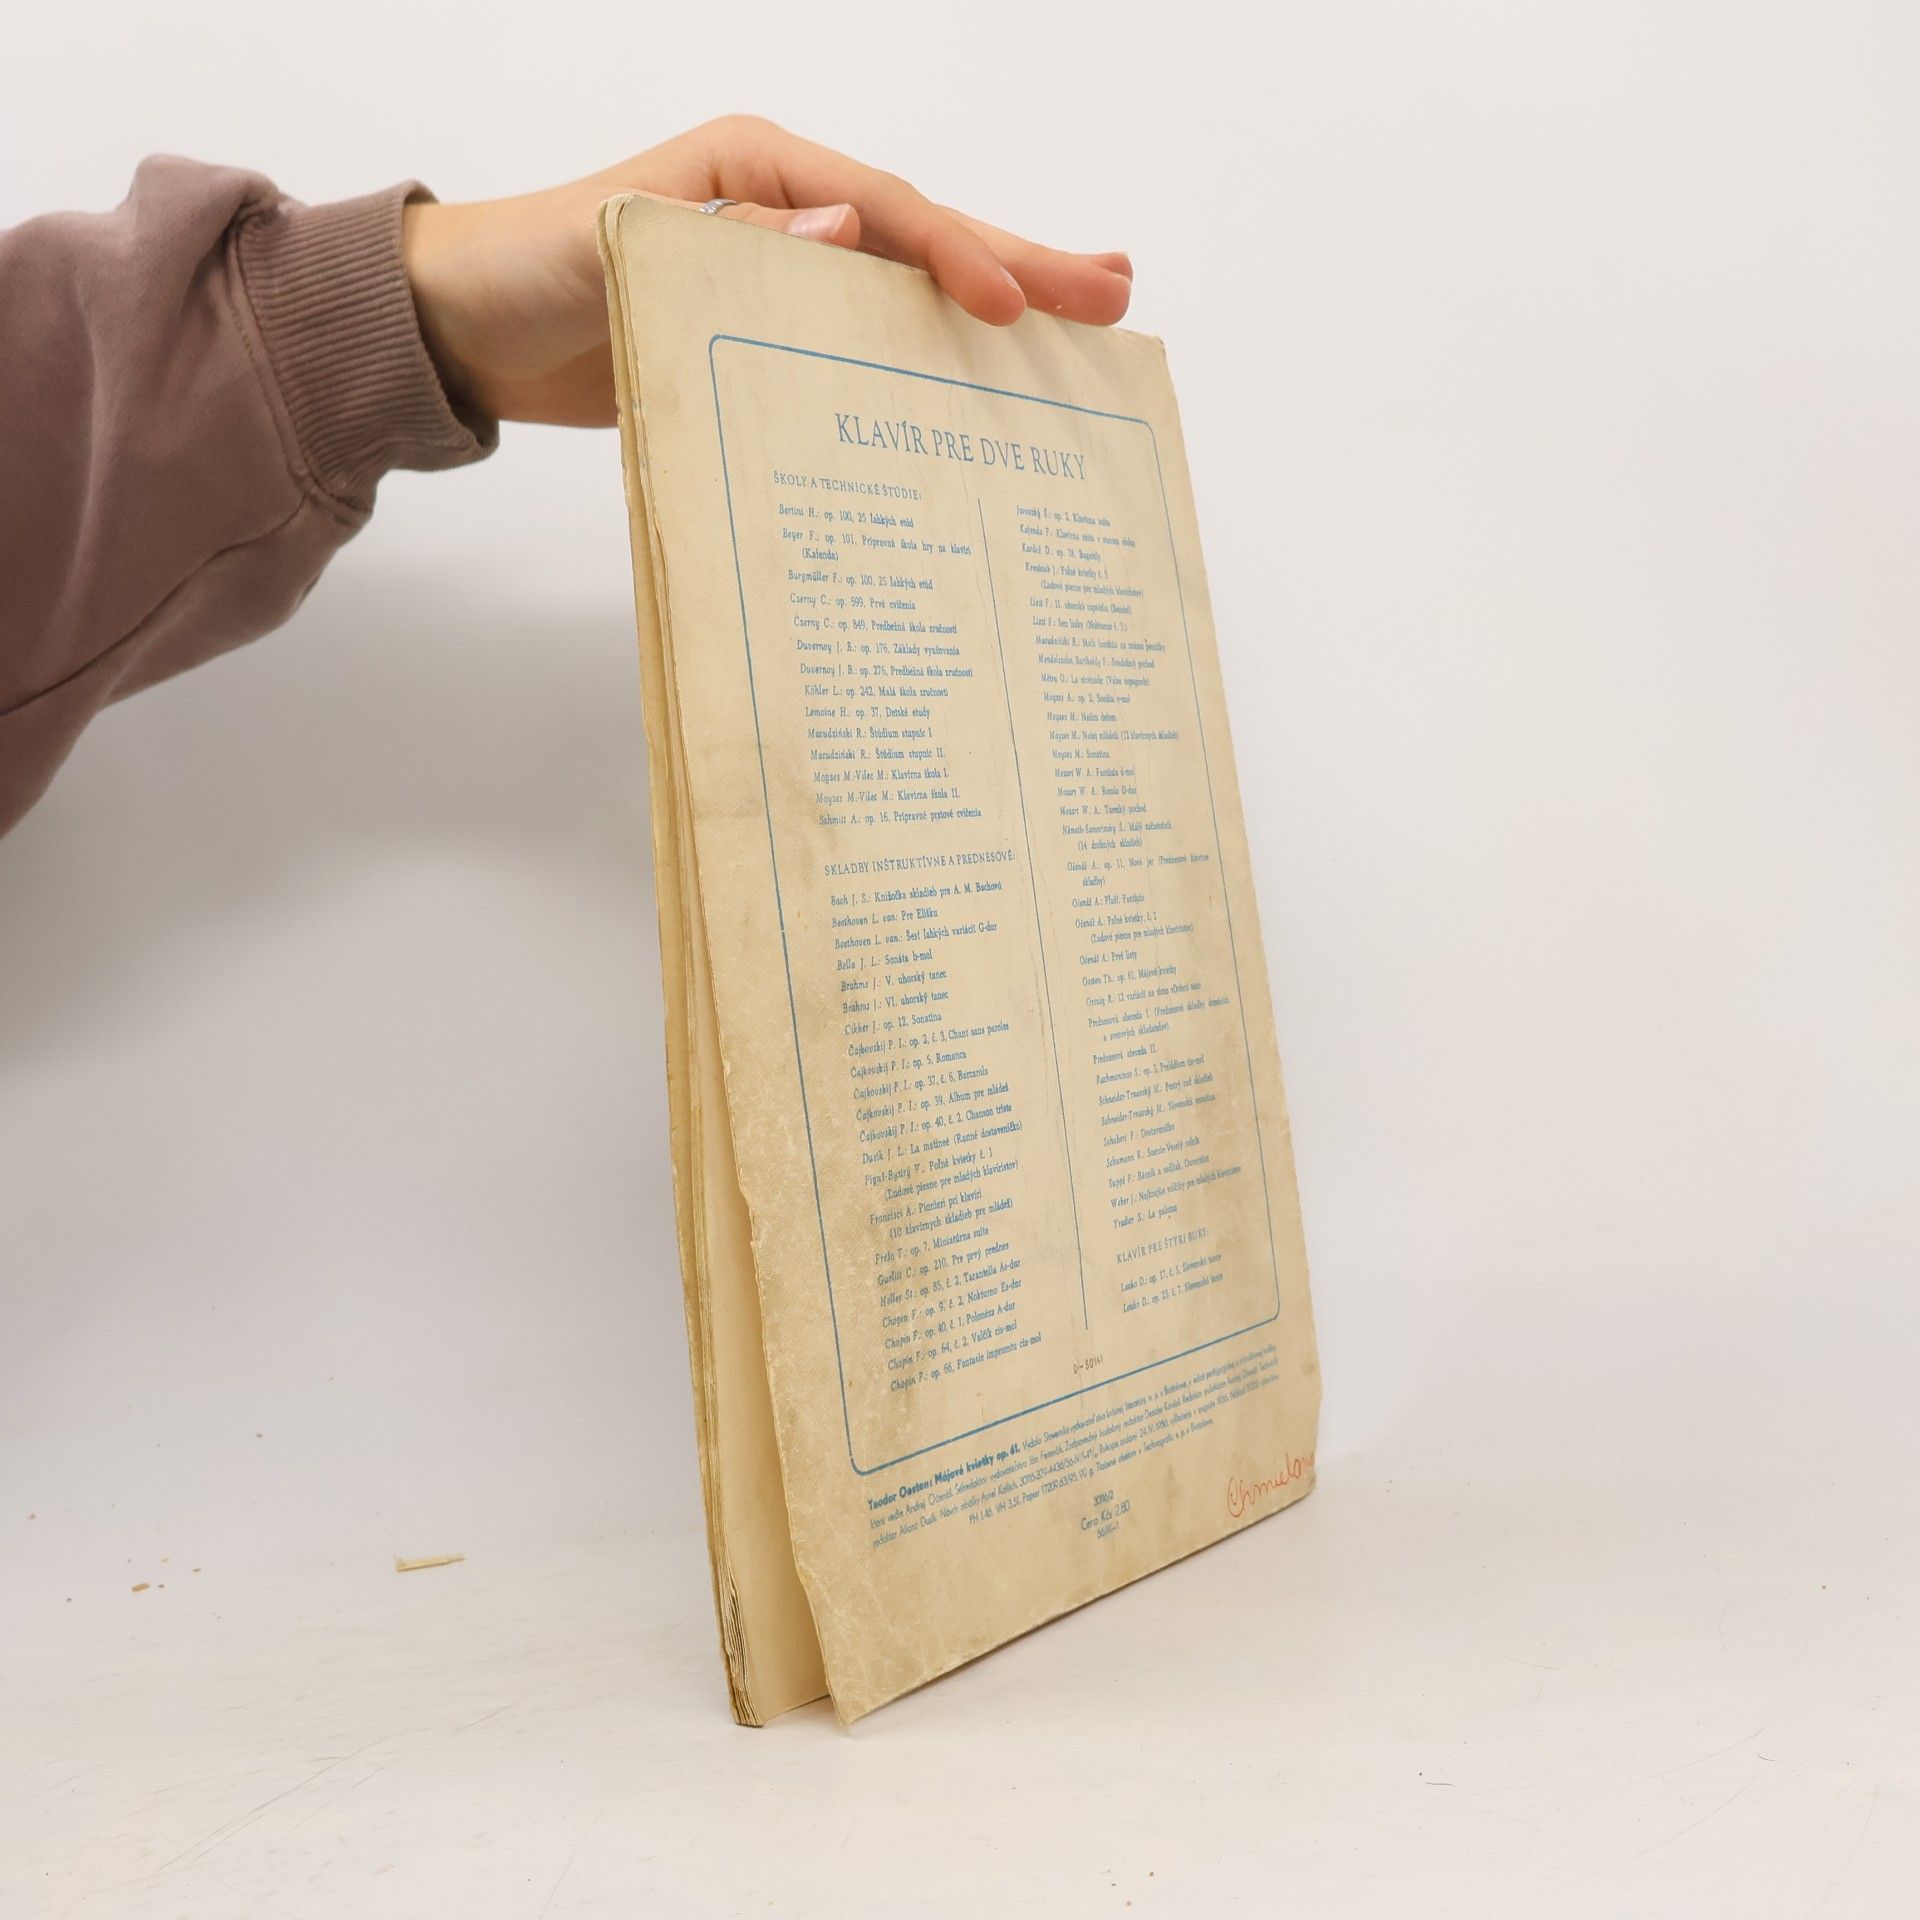 KLAVÍR PRE DVE RUKY
ŠKOLY A TECHNICKÉ ŠTÚDIE:
Bertini H.: op. 100, 25 ľahkých etúd
Beyer F.: op. 101, Prípravná škola hry na klavíri
(Kafenda)
Burgmüller F.: op. 100, 25 ľahkých etúd
Czerny C.: op. 599, Prvé cvičenia
Czerny C.: op. 849, Predbežná škola zručnosti
Duvernoy J. B.: op. 176, Základy vyučovania
Duvernoy J. B.: op. 276, Predbežná škola zručnosti
Köhler L.: op. 242, Malá škola zručnosti
Lemoine H.: op. 37, Detské etudy
Macudziński R.: Štúdium stupníc I
Macudziński R.: Štúdium stupníc II.
Moyzes M.-Vilec M.: Klavírna škola I.
Moyzes M.-Vilec M.: Klavírna škola II.
Schmitt A.: op. 16, Prípravné prstové cvičenia
SKLADBY INŠTRUKTÍVNE A PREDNESOVÉ:
Bach J. S.: Knižočka skladieb pre A. M. Bachovú
Beethoven L. van: Pre Elišku
Beethoven L. van.: Šesť ľahkých variácií G-dur
Bella J. L.: Sonáta b-mol
Brahms J.: V. uhorský tanec
Brahms J.: VI. uhorský tanec
Cikker J.: op. 12, Sonatína
Čajkovskij P. I.: op. 2, č. 3, Chant sans paroles
Čajkovskij P. I.: op. 5, Romanca
Čajkovskij P. I.: op. 37, č. 6, Barcarola
Čajkovskij P. I.: op. 39, Album pre mládež
Čajkovskij P. I.: op. 40, č. 2, Chanson triste
Dusík J. L.: La matineé (Ranné dostaveníčko)
Figuš-Bystrý V.: Poľné kvietky č. 1
(Ľudové piesne pre mladých klaviristov)
Francisci A.: Pionieri pri klavíri
(10 klavírnych skladieb pre mládež)
Frešo T.: op. 7, Miniatúrna suita
Gurlitt C.: op. 210, Pre prvý prednes
Heller St.: op. 85, č. 2, Tarantella As-dur
Chopin F.: op. 9, č. 2, Nokturno Es-dur
Chopin F.: op. 40, č. 1, Polonéza A-dur
Chopin F.: op. 64, č. 2, Valčík cis-mol
Chopin F.: op. 66, Fantasie impromtu cis-mol
Jurovský Š.: op. 2, Klavírna suita
Kafenda F.: Klavírna suita v starom slohu
Kardoš D.: op. 18, Bagately
Kresánek J.: Poľné kvietky č. 3
(Ľudové piesne pre mladých klaviristov)
Liszt F.: II. uhorská rapsódia (Bendel)
Liszt F.: Sen lásky (Nokturno č. 3.)
Macudziński R.: Malá fantázia na známe pesničky
Mendelssohn Bartholdy F.: Svadobný pochod
Métra O.: La sérénade (Valse espagnole)
Moyzes A.: op. 2, Sonáta e-mol
Moyzes M.: Našim deťom
Moyzes M.: Našej mládeži (12 klavírnych skladieb)
Moyzes M.: Sonatina
Mozart W. A.: Fantázia d-mol
Mozart W. A.: Rondo D-dur
Mozart W. A.: Turecký pochod
Németh-Šamorínsky Š.: Malý začiatočník
(14 drobných skladieb)
Očenáš A.: op. 11, Nová jar (Prednesové klavírne
skladby)
Očenáš A.: Plnič, Fantázia
Očenáš A.: Poľné kvietky, č. 2
(Ľudové piesne pre mladých klaviristov)
Očenáš A.: Prvé listy
Oesten Th.: op. 61, Májové kvietky
Prednesová abeceda I. (Prednesové skladby domácich
a svetových skladateľov)
Prednesová abeceda II.
Rachmaninov S.: op. 3, Prelúdium cis-mol
Schneider-Trnavský M.: Pestrý rad skladieb
Schneider-Trnavský M.: Slovenská sonatína
Schubert F.: Dostaveníčko
Schumann R.: Snenie-Veselý roľník
Suppé F.: Básnik a sedliak, Ouvertúra
Weber J.: Najkrajšie valčíky pre mladých klaviristov
Yradier S.: La paloma
KLAVÍR PRE ŠTYRI RUKY:
Lauko D.: op. 17, č. 5, Slovenské tance
Lauko D.: op. 23, č. 7, Slovenské tance
D-50141
Teodor Oesten: Májové kvietky op. 61. Vydalo Slovenské vydavateľstvo krásnej literatúry, n. p. v Bratislave, v edícii pedagogickej a inštruktívnej hudby,
ktorú vedie Andrej Očenáš. Šéfredaktor vydavateľstva Ján Ferenčík. Zodpovedný hudobný redaktor Dezider Kardoš. Redakciu publikácie Andrej Očenáš. Technický
redaktor Alfonz Dusík. Návrh obálky Aurel Kajlich. Rukopis zadaný 24. IV. 1956, vytlačené v auguste 1956.
PH 1.46. VH 3.51. Papier 17209, 63/95, 90 g. Tlačené ofsetom v Technografii, n. p. v Bratislave.
30116/2
Cena Kčs 2,80
56/IX-1